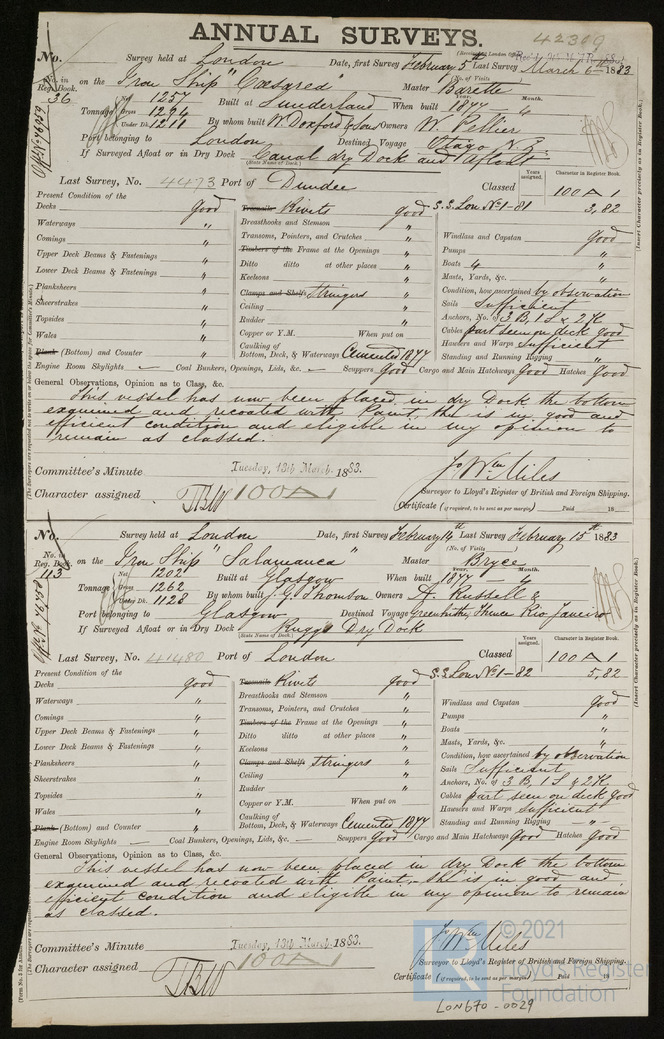 ANNUAL SURVEYS.
42309
No. Survey held at London Date, first Survey February 5th Last Survey March 6th 1883
No. in Reg. Book. 36 on the Iron Ship "Cæsarea" (No. of Visits ) Master Barette
Tonnage Net 1257 Gross 1294 Under Dk. 1211 Built at Sunderland When built Year. 1877 Month. "
By whom built W. Doxford & Sons Owners W. Pellier
Port belonging to London Destined Voyage Otago N.Z.
If Surveyed Afloat or in Dry Dock Canal dry Dock and Afloat
(State Name of Dock.)
Last Survey, No. 4473 Port of Dundee Classed Years assigned. Character in Register Book. 100 A 1
S.S. Lon No 1-81 3,82
Present Condition of the
Decks good Treenails Rivets good
Waterways " Breasthooks and Stemson " Windlass and Capstan Good
Comings " Transoms, Pointers, and Crutches " Pumps "
Upper Deck Beams & Fastenings " Timbers of the Frame at the Openings " Boats 4 "
Lower Deck Beams & Fastenings " Ditto ditto at other places " Masts, Yards, &c. "
Planksheers " Keelsons " Condition, how ascertained by observation
Sheerstrakes " Clamps and Shelfs Stringers " Sails Sufficient
Topsides " Ceiling " Anchors, No. of 3 B, 1 S & 2 K
Wales " Rudder " Cables part seen on deck good
Plank (Bottom) and Counter " Copper or Y.M. When put on Hawsers and Warps Sufficient
Caulking of Bottom, Deck, & Waterways Cemented 1877 Standing and Running Rigging "
Engine Room Skylights — Coal Bunkers, Openings, Lids, &c. — Scuppers Good Cargo and Main Hatchways Good Hatches Good
General Observations, Opinion as to Class, &c.
This vessel has now been placed in dry Dock the bottom
examined and recoated with Paint, she is in good and
efficient condition and eligible in my opinion to
remain as classed.
Committee's Minute Tuesday, 13th March, 1883.
Jo Wm Miles
Character assigned 100 A 1
Surveyor to Lloyd's Register of British and Foreign Shipping.
Certificate (if required, to be sent as per margin) Paid 18
No. Survey held at London Date, first Survey February 14th Last Survey February 15th 1883
No. in Reg. Book. 113 on the Iron Ship "Salamanca" (No. of Visits ) Master Bryce
Tonnage Net 1202 Gross 1262 Under Dk. 1128 Built at Glasgow When built Year. 1877 Month. "
By whom built J. G. Thomson Owners A. Russell &
Port belonging to Glasgow Destined Voyage Greenhithe, Thence Rio Janeiro
If Surveyed Afloat or in Dry Dock Ruggs Dry Dock
(State Name of Dock.)
Last Survey, No. 41480 Port of London Classed Years assigned. Character in Register Book. 100 A 1
S.S. Lon No 1-82 5,82
Present Condition of the
Decks good Treenails Rivets good
Waterways " Breasthooks and Stemson " Windlass and Capstan Good
Comings " Transoms, Pointers, and Crutches " Pumps "
Upper Deck Beams & Fastenings " Timbers of the Frame at the Openings " Boats "
Lower Deck Beams & Fastenings " Ditto ditto at other places " Masts, Yards, &c. "
Planksheers " Keelsons " Condition, how ascertained by observation
Sheerstrakes " Clamps and Shelfs Stringers " Sails Sufficient
Topsides " Ceiling " Anchors, No. of 3 B, 1 S & 2 K
Wales " Rudder " Cables part seen on deck good
Plank (Bottom) and Counter " Copper or Y.M. When put on Hawsers and Warps sufficient
Caulking of Bottom, Deck, & Waterways Cemented 1877 Standing and Running Rigging "
Engine Room Skylights — Coal Bunkers, Openings, Lids, &c. — Scuppers Good Cargo and Main Hatchways Good Hatches Good
General Observations, Opinion as to Class, &c.
This vessel has now been placed in dry Dock the bottom
examined and recoated with Paint, she is in good and
efficient condition and eligible in my opinion to remain
as classed.
Committee's Minute Tuesday, 13th March, 1883.
Jo Wm Miles
Character assigned 100 A 1
Surveyor to Lloyd's Register of British and Foreign Shipping.
Certificate (if required, to be sent as per margin) Paid 18
© 2021
Lloyd's Register
Foundation
LON670-0029